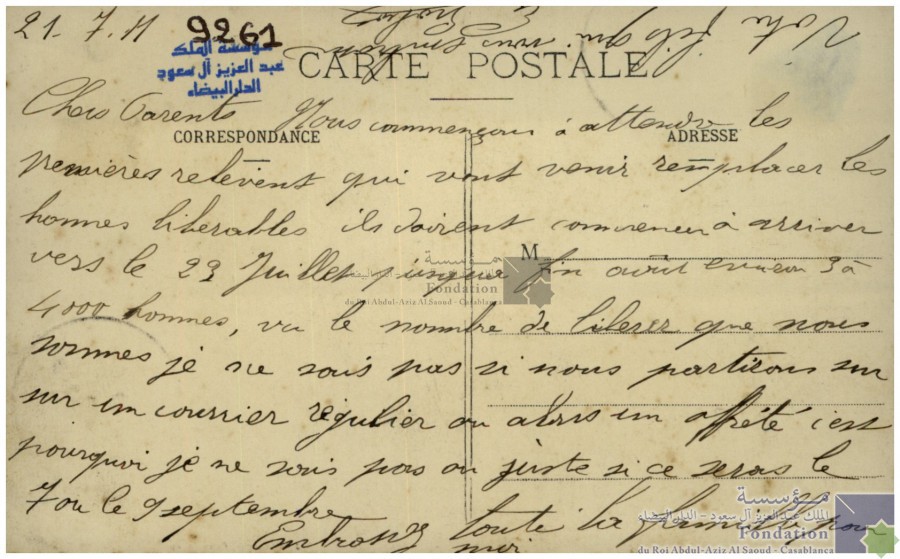 21. 7. 11
9261
مؤسسة الملك
عبد العزيز آل سعود
الدار البيضاء
CARTE POSTALE
CORRESPONDANCE
ADRESSE
Chers Parents Nous commençons à attendre les
premières relèvent qui vont venir remplacer les
hommes liberables ils doivent commencer à arriver
vers le 23 Juillet jusque fin août environ 3 à
4000 hommes, vu le nombre de liberer que nous
sommes je ne sais pas si nous partirons sur
sur un courrier régulier ou alors un affrété c'est
pourquoi je ne sais pas au juste si ce seras le
7 ou le 9 septembre
Embrassez toute la famille pour
moi
Votre fils qui vous
M
مؤسسة
Fondation
du Roi Abdul-Aziz Al Saoud - Casablanca
مؤسسة
الملك عبد العزيز آل سعود - الدار البيضاء
Fondation
du Roi Abdul-Aziz Al Saoud - Casablanca